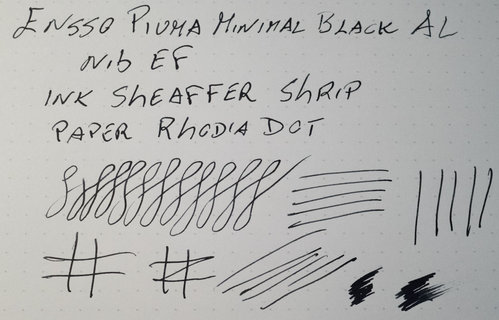 ENSSO PIUMA MINIMAL BLACK AL
Nib EF
INK SHEAFFER SHRIP
PAPER RhodIA DOT